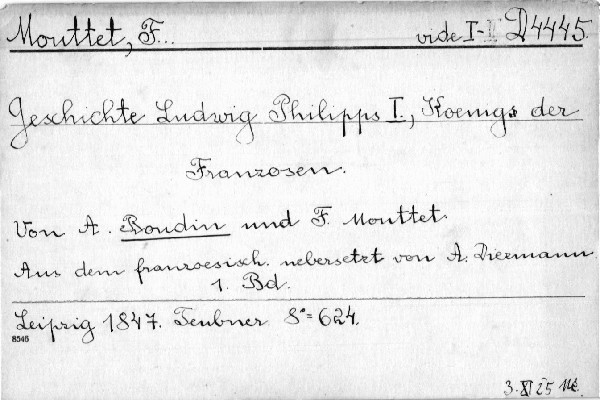 Mouttet, F... vide I-I D4445.
Geschichte Ludwig Philipps I., Koenigs der
Franzosen.
Von A. Boudin und F. Mouttet.
Aus dem franzoesisch. uebersetzt von A. Diezmann.
1. Bd.
Leipzig 1847. Teubner 8°=624.
8545
3. XI 25